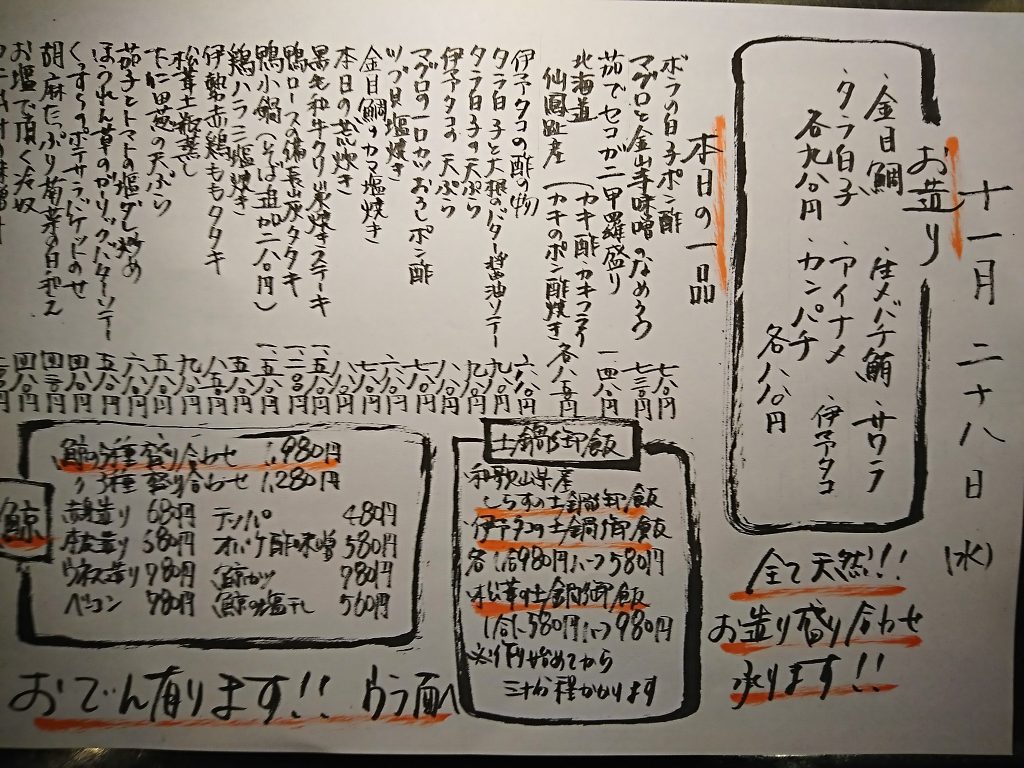 十一月二十八日(水)
お造り
・金目鯛 ・生メバチ鮪 ・サワラ
・タラ白子 ・アイナメ ・伊予タコ
・カンパチ
各九八〇円 各八八〇円
全て天然!!
お造り盛り合わせ
承ります!!
本日の一品
ボラの白子ポン酢 七八〇円
マグロと金山寺味噌のなめろう 七三〇円
茹でセコガニ甲羅盛り 一、四八〇円
北海道
仙鳳趾産
(カキ酢 カキフライ
(カキのポン酢焼き 各八五〇円
伊予タコの酢の物 六八〇円
タラ白子と大根のバター醤油ソテー 九八〇円
タラ白子の天ぷら 九八〇円
伊予タコの天ぷら 八八〇円
マグロの一口カツおろしポン酢 七八〇円
ツブ貝塩焼き 六八〇円
金目鯛のカマ塩焼き 七八〇円
本日の荒炊き 八八〇円
黒毛和牛クリ炭焼きステーキ 一、五八〇円
鴨ロースの備長炭タタキ
鴨小鍋(そば追加二八〇円) 一、五八〇円
鶏ハラミ塩焼き 五八〇円
伊勢赤鶏ももタタキ 八五〇円
松茸土瓶蒸し 九八〇円
下仁田葱の天ぷら 五八〇円
茄子とトマトの塩ダレ炒め 六八〇円
ほうれん草のガーリックバターソテー 五八〇円
くんすけのポテサラバゲットのせ 四八〇円
胡麻たっぷり菊菜の白和え 四三〇円
お塩で頂く冷奴 四八〇円
土鍋御飯
・和歌山県産
しらすの土鍋御飯
・伊予タコの土鍋御飯
各1合980円 ハーフ580円
・松茸の土鍋御飯
1合1,580円 ハーフ980円
※作り始めてから
三十分程かかります
鯨
鯨の5種盛り合わせ 1,980円
〃 3種盛り合わせ 1,280円
赤身造り 680円 テッパ 480円
本皮造り 580円 オバケ酢味噌 580円
ウネス造り 980円 鯨カツ 980円
ベーコン 980円 鯨の塩干し 560円
おでん有ります!! ウラ面へ